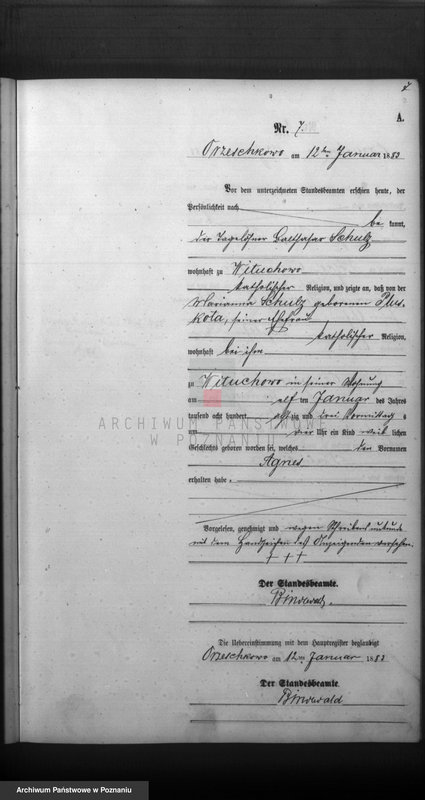 7
A.
Nr. 7.
Orzeschkowo am 12ten Januar 1883
Vor dem unterzeichneten Standesbeamten erschien heute, der
Persönlichkeit nach
be kannt,
der Tagelöhner Balthasar Schulz
wohnhaft zu Wituchowo
katholischer Religion, und zeigte an, daß von der
Marianna Schulz geborenen Plus-
kota, seiner Ehefrau
katholischer Religion,
wohnhaft bei ihm
zu Wituchowo in seiner Wohnung
am elf ten Januar des Jahres
tausend acht hundert acht zig und drei Vormittag s
um vier Uhr ein Kind weib lichen
Geschlechts geboren worden sei, welches den Vornamen
Agnes
erhalten habe.
Vorgelesen, genehmigt und wegen Schreibensunkunde
mit dem Handzeichen des Anzeigenden versehen.
† † †
Der Standesbeamte.
Bindewald.
Die Uebereinstimmung mit dem Hauptregister beglaubigt
Orzeschkowo am 12ten Januar 1883
Der Standesbeamte.
Bindewald
ARCHIWUM PAŃSTWOWE
W POZNANIU
Archiwum Państwowe w Poznaniu